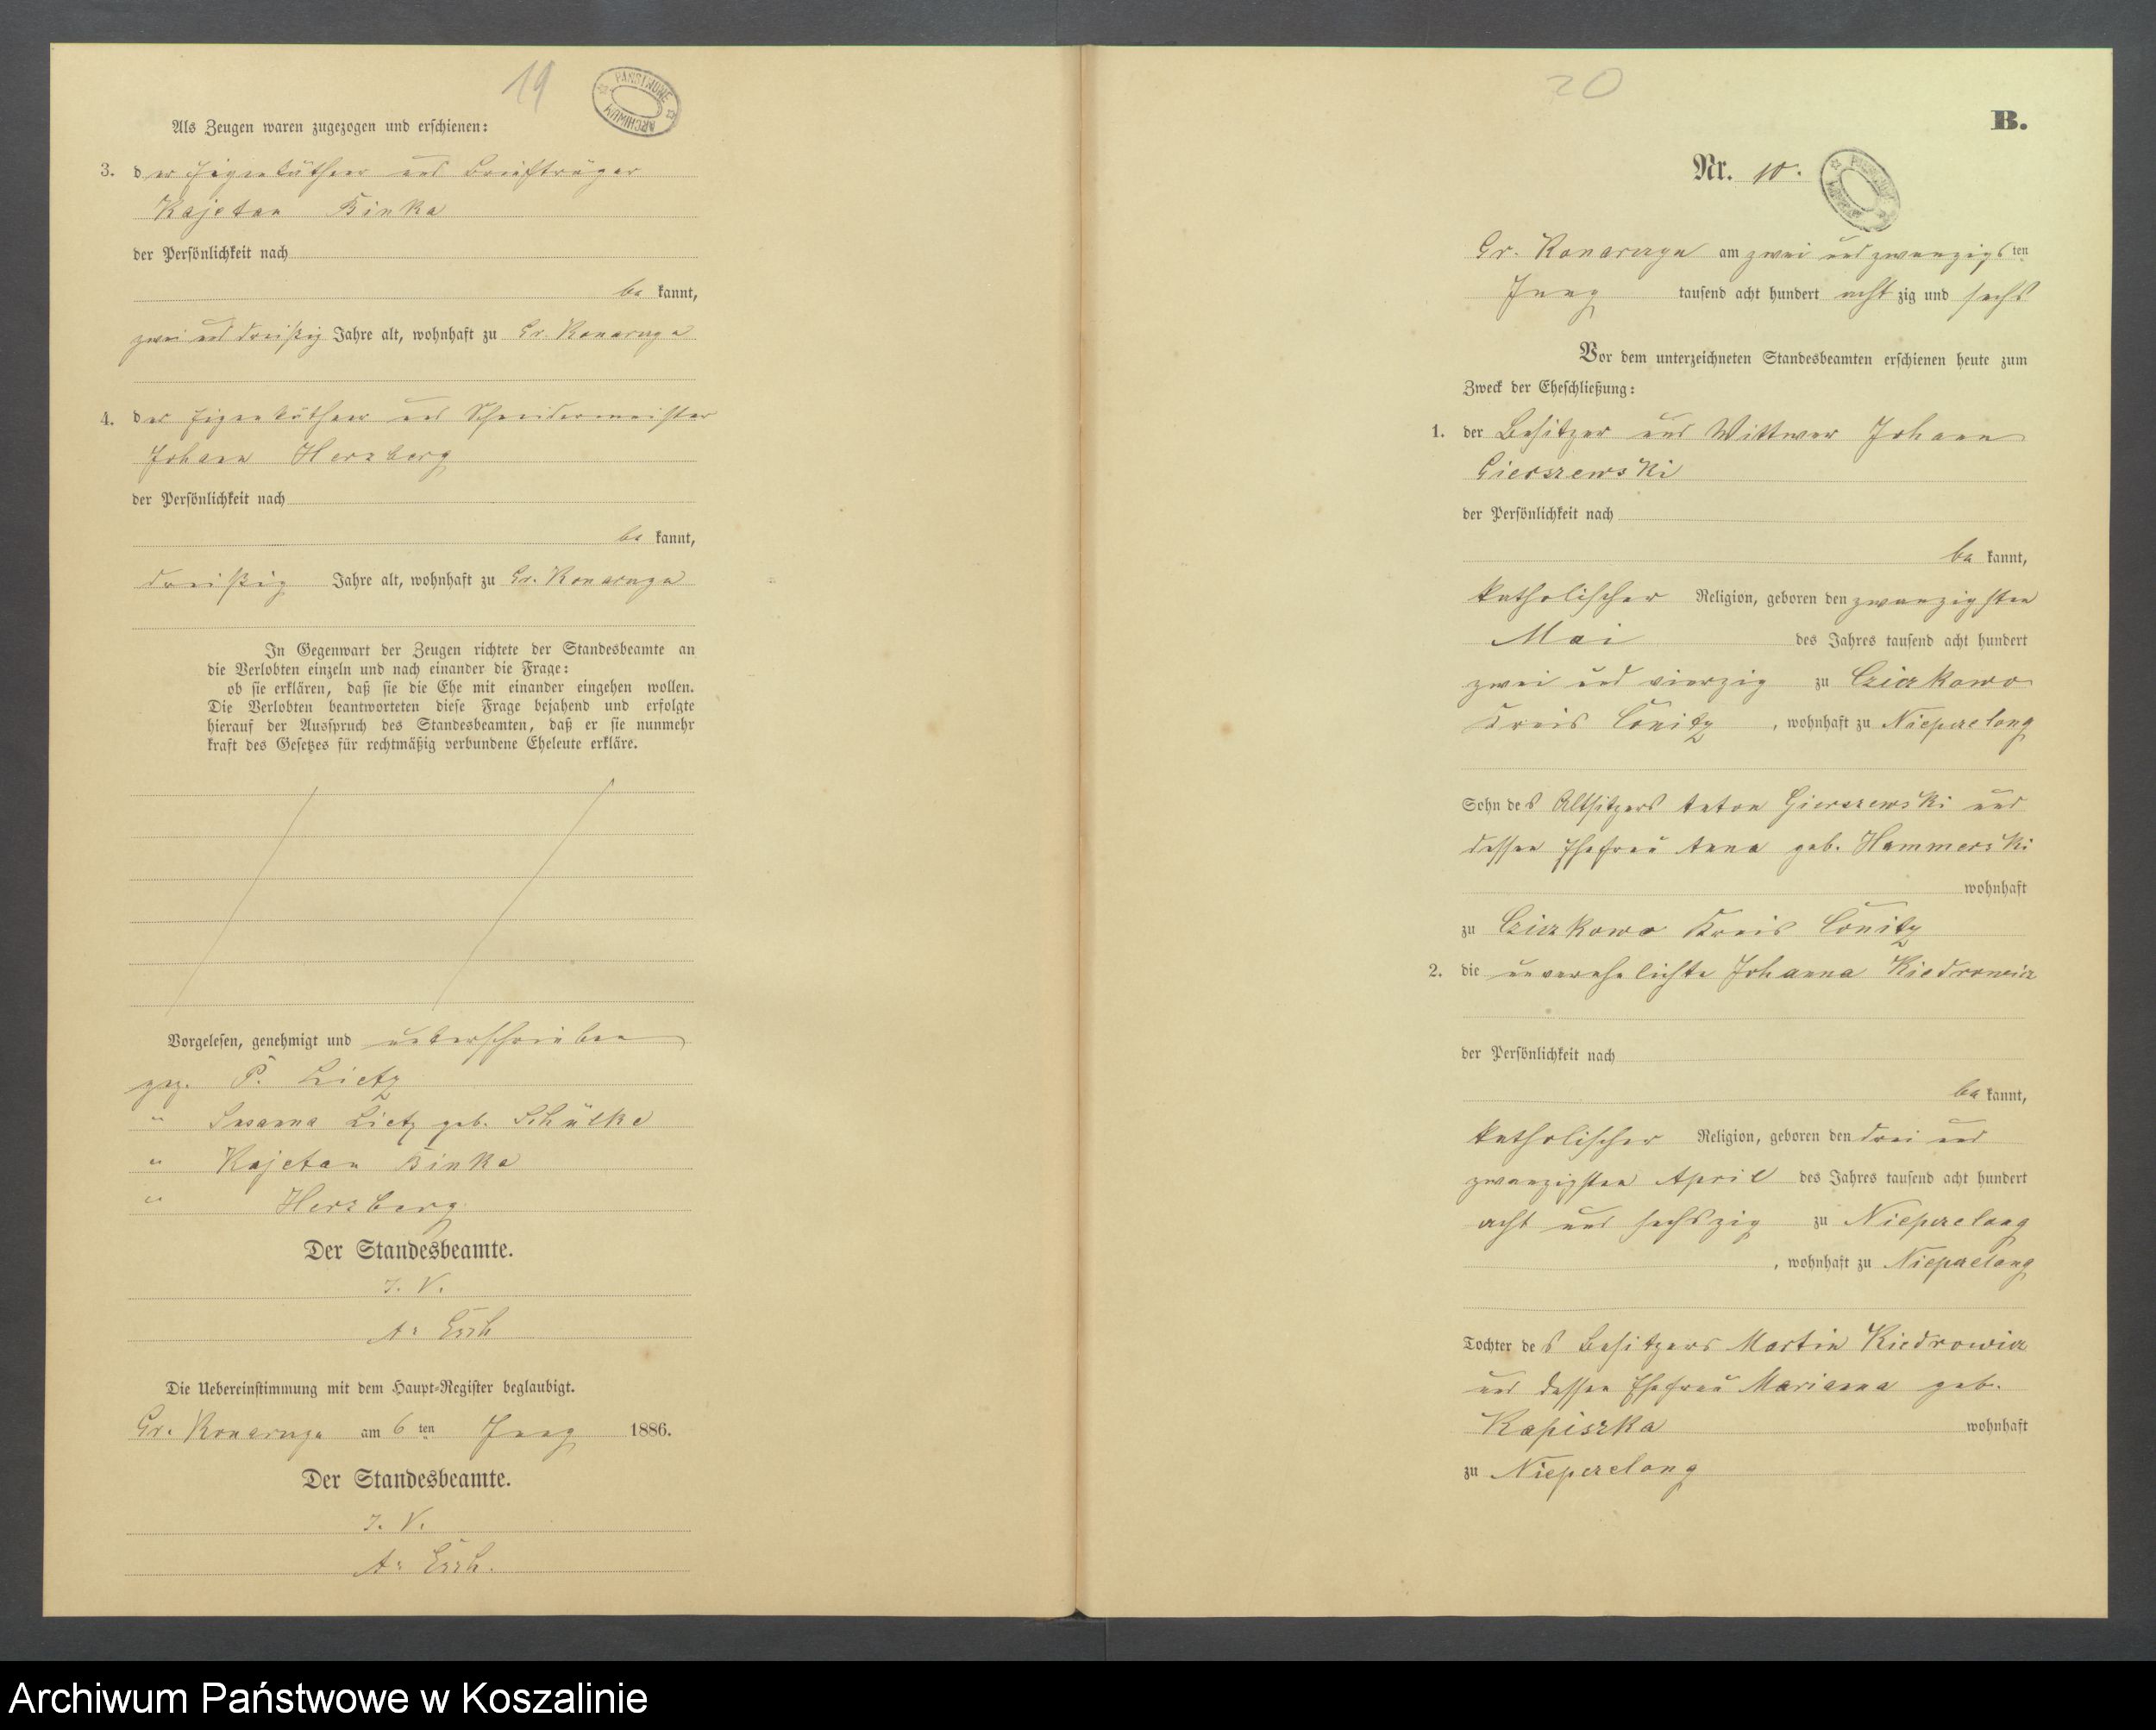 19
PAŃSTWOWE ARCHIWUM
Als Zeugen waren zugezogen und erschienen:
3. der Eigenkäthner und Briefträger
Kajetan Binka
der Persönlichkeit nach
be kannt,
zwei und dreißig Jahre alt, wohnhaft zu Gr. Konarczyn
4. der Eigenkäthner und Schneidermeister
Johann Herzberg
der Persönlichkeit nach
be kannt,
dreißig Jahre alt, wohnhaft zu Gr. Konarczyn
In Gegenwart der Zeugen richtete der Standesbeamte an
die Verlobten einzeln und nach einander die Frage:
ob sie erklären, daß sie die Ehe mit einander eingehen wollen.
Die Verlobten beantworteten diese Frage bejahend und erfolgte
hierauf der Ausspruch des Standesbeamten, daß er sie nunmehr
kraft des Gesetzes für rechtmäßig verbundene Eheleute erkläre.
Vorgelesen, genehmigt und unterschrieben
gez. P. Lietz
" Susanna Lietz geb. Schülke
" Kajetan Binka
" Herzberg
Der Standesbeamte.
I. V.
Die Uebereinstimmung mit dem Haupt-Register beglaubigt.
am 6 ten Juny 1886.
Der Standesbeamte.
I. V.
20
B.
Nr. 10.
am zwei und zwanzigs ten
Juny tausend acht hundert acht zig und sechs
Vor dem unterzeichneten Standesbeamten erschienen heute zum
Zweck der Eheschließung:
1. der Besitzer und Wittwer Johann
Gierszewski
der Persönlichkeit nach
be kannt,
katholischer Religion, geboren den zwanzigsten
Mai des Jahres tausend acht hundert
zwei und vierzig zu
Kreis Conitz, wohnhaft zu
Sohn des Altsitzers Anton Gierszewski und
dessen Ehefrau Anna geb. Hammerski
wohnhaft
zu Kreis Conitz
2. die unverehelichte Johanna Kiedrowicz
der Persönlichkeit nach
be kannt,
katholischer Religion, geboren den drei und
zwanzigsten April des Jahres tausend acht hundert
acht und sechszig zu
, wohnhaft zu
Tochter des Besitzers Martin Kiedrowicz
und dessen Ehefrau Marianna geb.
Kapiszka wohnhaft
zu
Archiwum Państwowe w Koszalinie